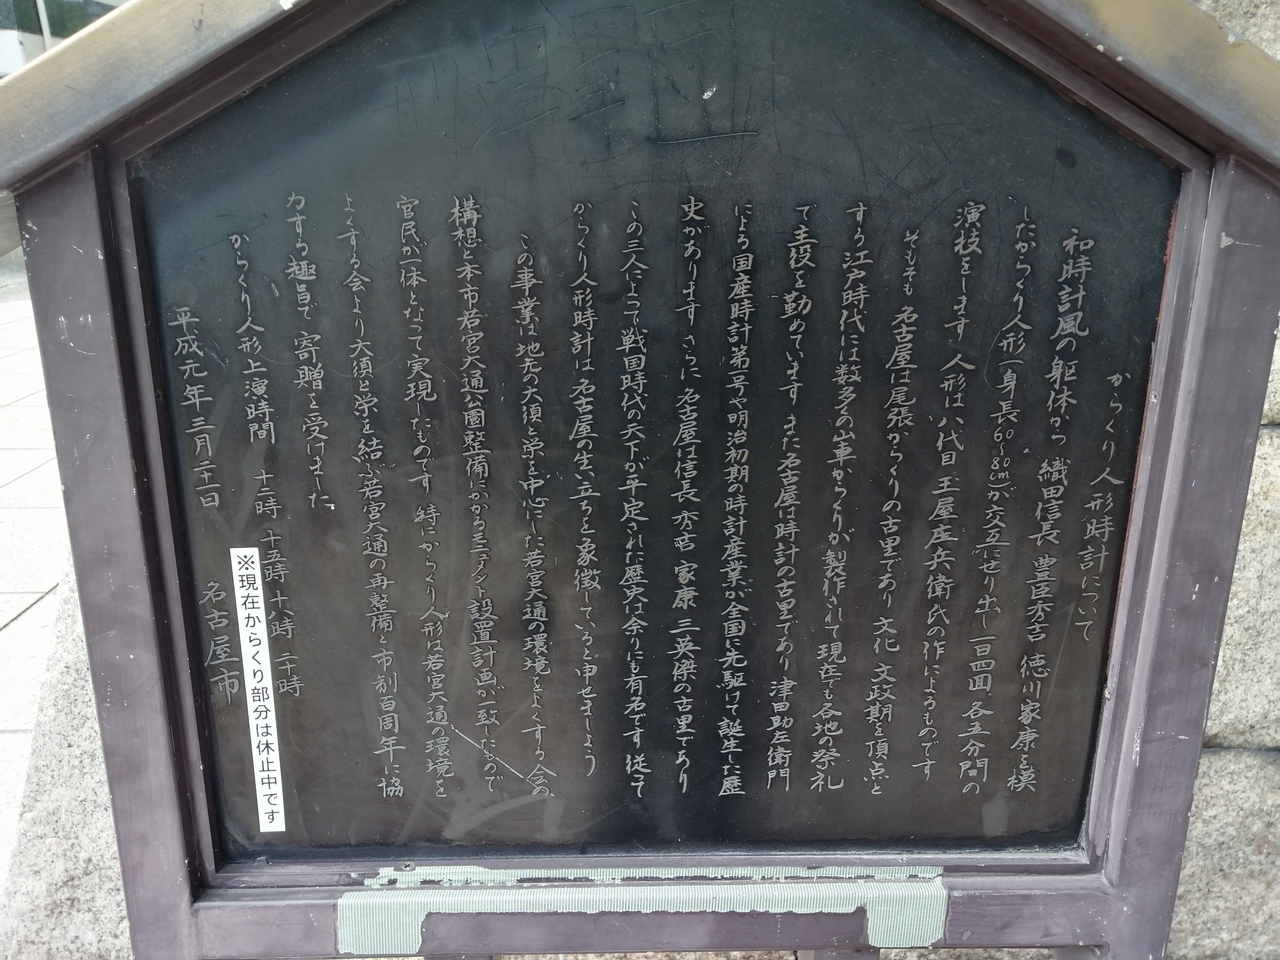 からくり人形時計について
和時計風の躯体から 織田信長 豊臣秀吉 徳川家康を模
したからくり人形(身長60~80cm)が交互にせり出し一日四回、各五分間の
演技をします 人形は八代目 玉屋庄兵衛氏の作によるものです
そもそも 名古屋は尾張からくりの古里であり 文化 文政期を頂点と
する江戸時代には数多くの山車からくりが製作されて現在でも各地の祭礼
で主役を勤めています また名古屋は時計の古里であり 津田助左衛門
による国産時計第一号や明治初期の時計産業が全国に先駆けて誕生した歴
史があります さらに 名古屋は信長 秀吉 家康 三英傑の古里であり
この三人によって戦国時代の天下が平定された歴史は余りにも有名です 従って
からくり人形時計は 名古屋の生い立ちを象徴していると申せましょう
この事業は地元の大須と栄を中心にした若宮大通の環境をよくする会の
構想と本市若宮大通公園整備にかかるモニュメント設置計画が一致したもので
官民が一体となって実現したものです 特にからくり人形は若宮大通の環境を
よくする会より大須と栄を結ぶ若宮大通の再整備と市制百周年に協
力する趣旨で 寄贈を受けました
からくり人形上演時間 十二時 十五時 十八時 二十時
平成元年三月二十一日 名古屋市
※現在からくり部分は休止中です